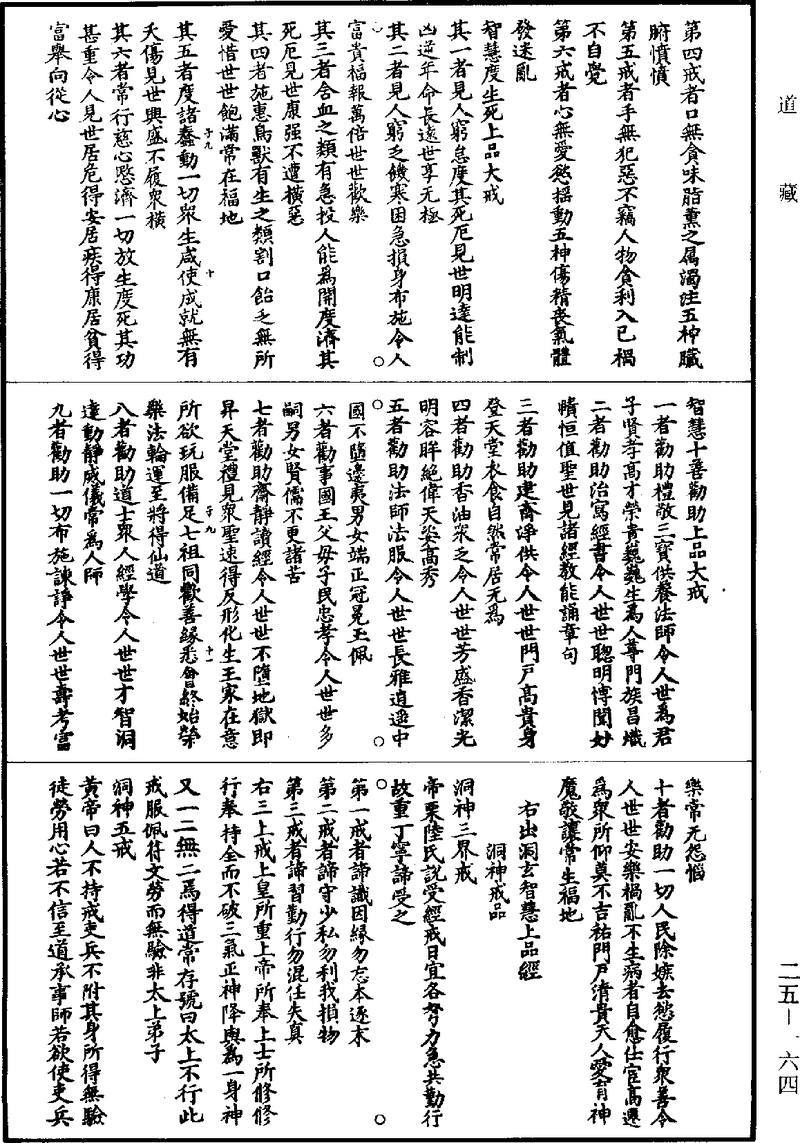 道藏
第四戒者口無貪味脂薰之属濁注五神臟
腑憒憒
第五戒者手無犯惡不竊人物貪利入已禍
不自覺
第六戒者心無愛慾揺動五神傷精喪氣體
發迷亂
智慧度生死上品大戒
其一者見人窮急度其死厄見世明達能制
凶逆年命長遠世享无極
其二者見人窮乏饑寒困急損身布施令人
富貴福報萬倍世世歡樂
其三者含血之類有急投人能為開度濟其
死厄見世康强不遭横惡
其四者施惠鳥獸有生之類割口飴乏無所
愛惜世世飽滿常在福地
其五者度諸蠢動一切衆生咸使成就無有
子九
十
夭傷見世興盛不履衆横
其六者常行慈心愍濟一切放生度死其功
甚重令人見世居危得安居疾得康居貧得
富舉向從心
智慧十善勸助上品大戒
一者勸助禮敬三寳供養法師令人世為君
子賢孝高才榮貴巍巍生為人尊門族昌熾
二者勸助治寫經書令人世世聰明博聞妙
賾恒值聖世見諸經教能誦章句
三者勸助建齋淨供令人世世門戸高貴身
登天堂衣食自然常居无為
四者勸助香油衆乏令人世世芳盛香潔光
明容眸絶偉天姿高秀
五者勸助法師法服令人世世長雅逍遥中
國不墮邊夷男女端正冠冕玉佩
六者勸事國王父母子民忠孝令人世世多
嗣男女賢儒不更諸苦
七者勸助齋靜讀經令人世世不墮地獄即
昇天堂禮見衆聖速得反形化生王家在意
所欲玩服備足七祖同歡善縁悉會終始榮
子九
十一
樂法輪運至將得仙道
八者勸助道士衆人經學令人世世才智洞
達動靜威儀常為人師
九者勸助一切布施諫諍令人世世壽考富
樂常无怨惱
十者勸助一切人民除嫉去慾履行衆善令
人世世安樂禍亂不生病者自愈仕宦高遷
為衆所仰莫不吉祐門戸清貴天人愛育神
魔敬讓常生福地
右出洞玄智慧上品經
洞神戒品
洞神三界戒
帝栗陸氏説受經戒日宜各努力急共勤行
故重丁寧諦受之
第一戒者諦識因縁勿忘本逐末
第二戒者諦守少私勿利我損物
第三戒者諦習勤行勿混任失真
右三上戒上皇所重上帝所奉上士所修修
行奉持全而不破三氣正神降與為一身神
又一二無二焉得道常存號曰太上不行此
戒服佩符文勞而無驗非太上弟子
洞神五戒
黃帝曰人不持戒吏兵不附其身所得無驗
徒勞用心若不信至道承事師若欲使吏兵
二五－一六四